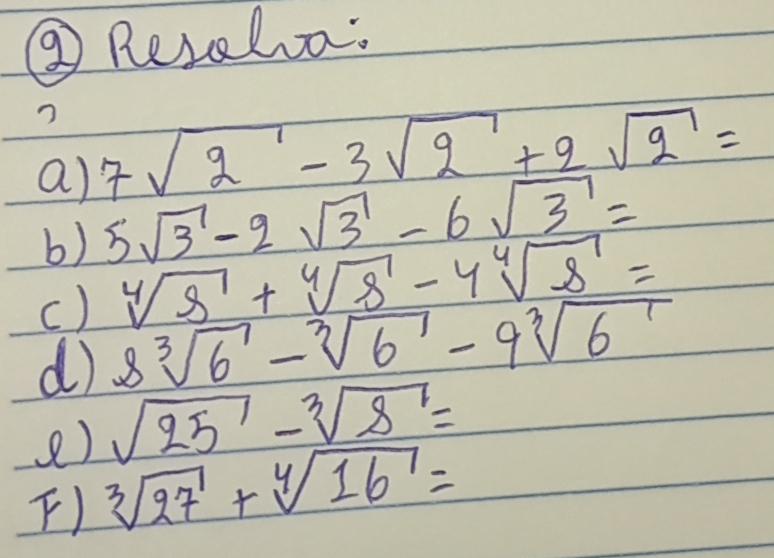 ② Resolva:
a) 7√2 - 3√2 + 2√2 =
b) 5√3 - 2√3 - 6√3 =
c) ∜8 + ∜8 - 4∜8 =
d) 8∛6 - ∛6 - 9∛6
e) √25 - ∛8 =
F) ∛27 + ∜16 =